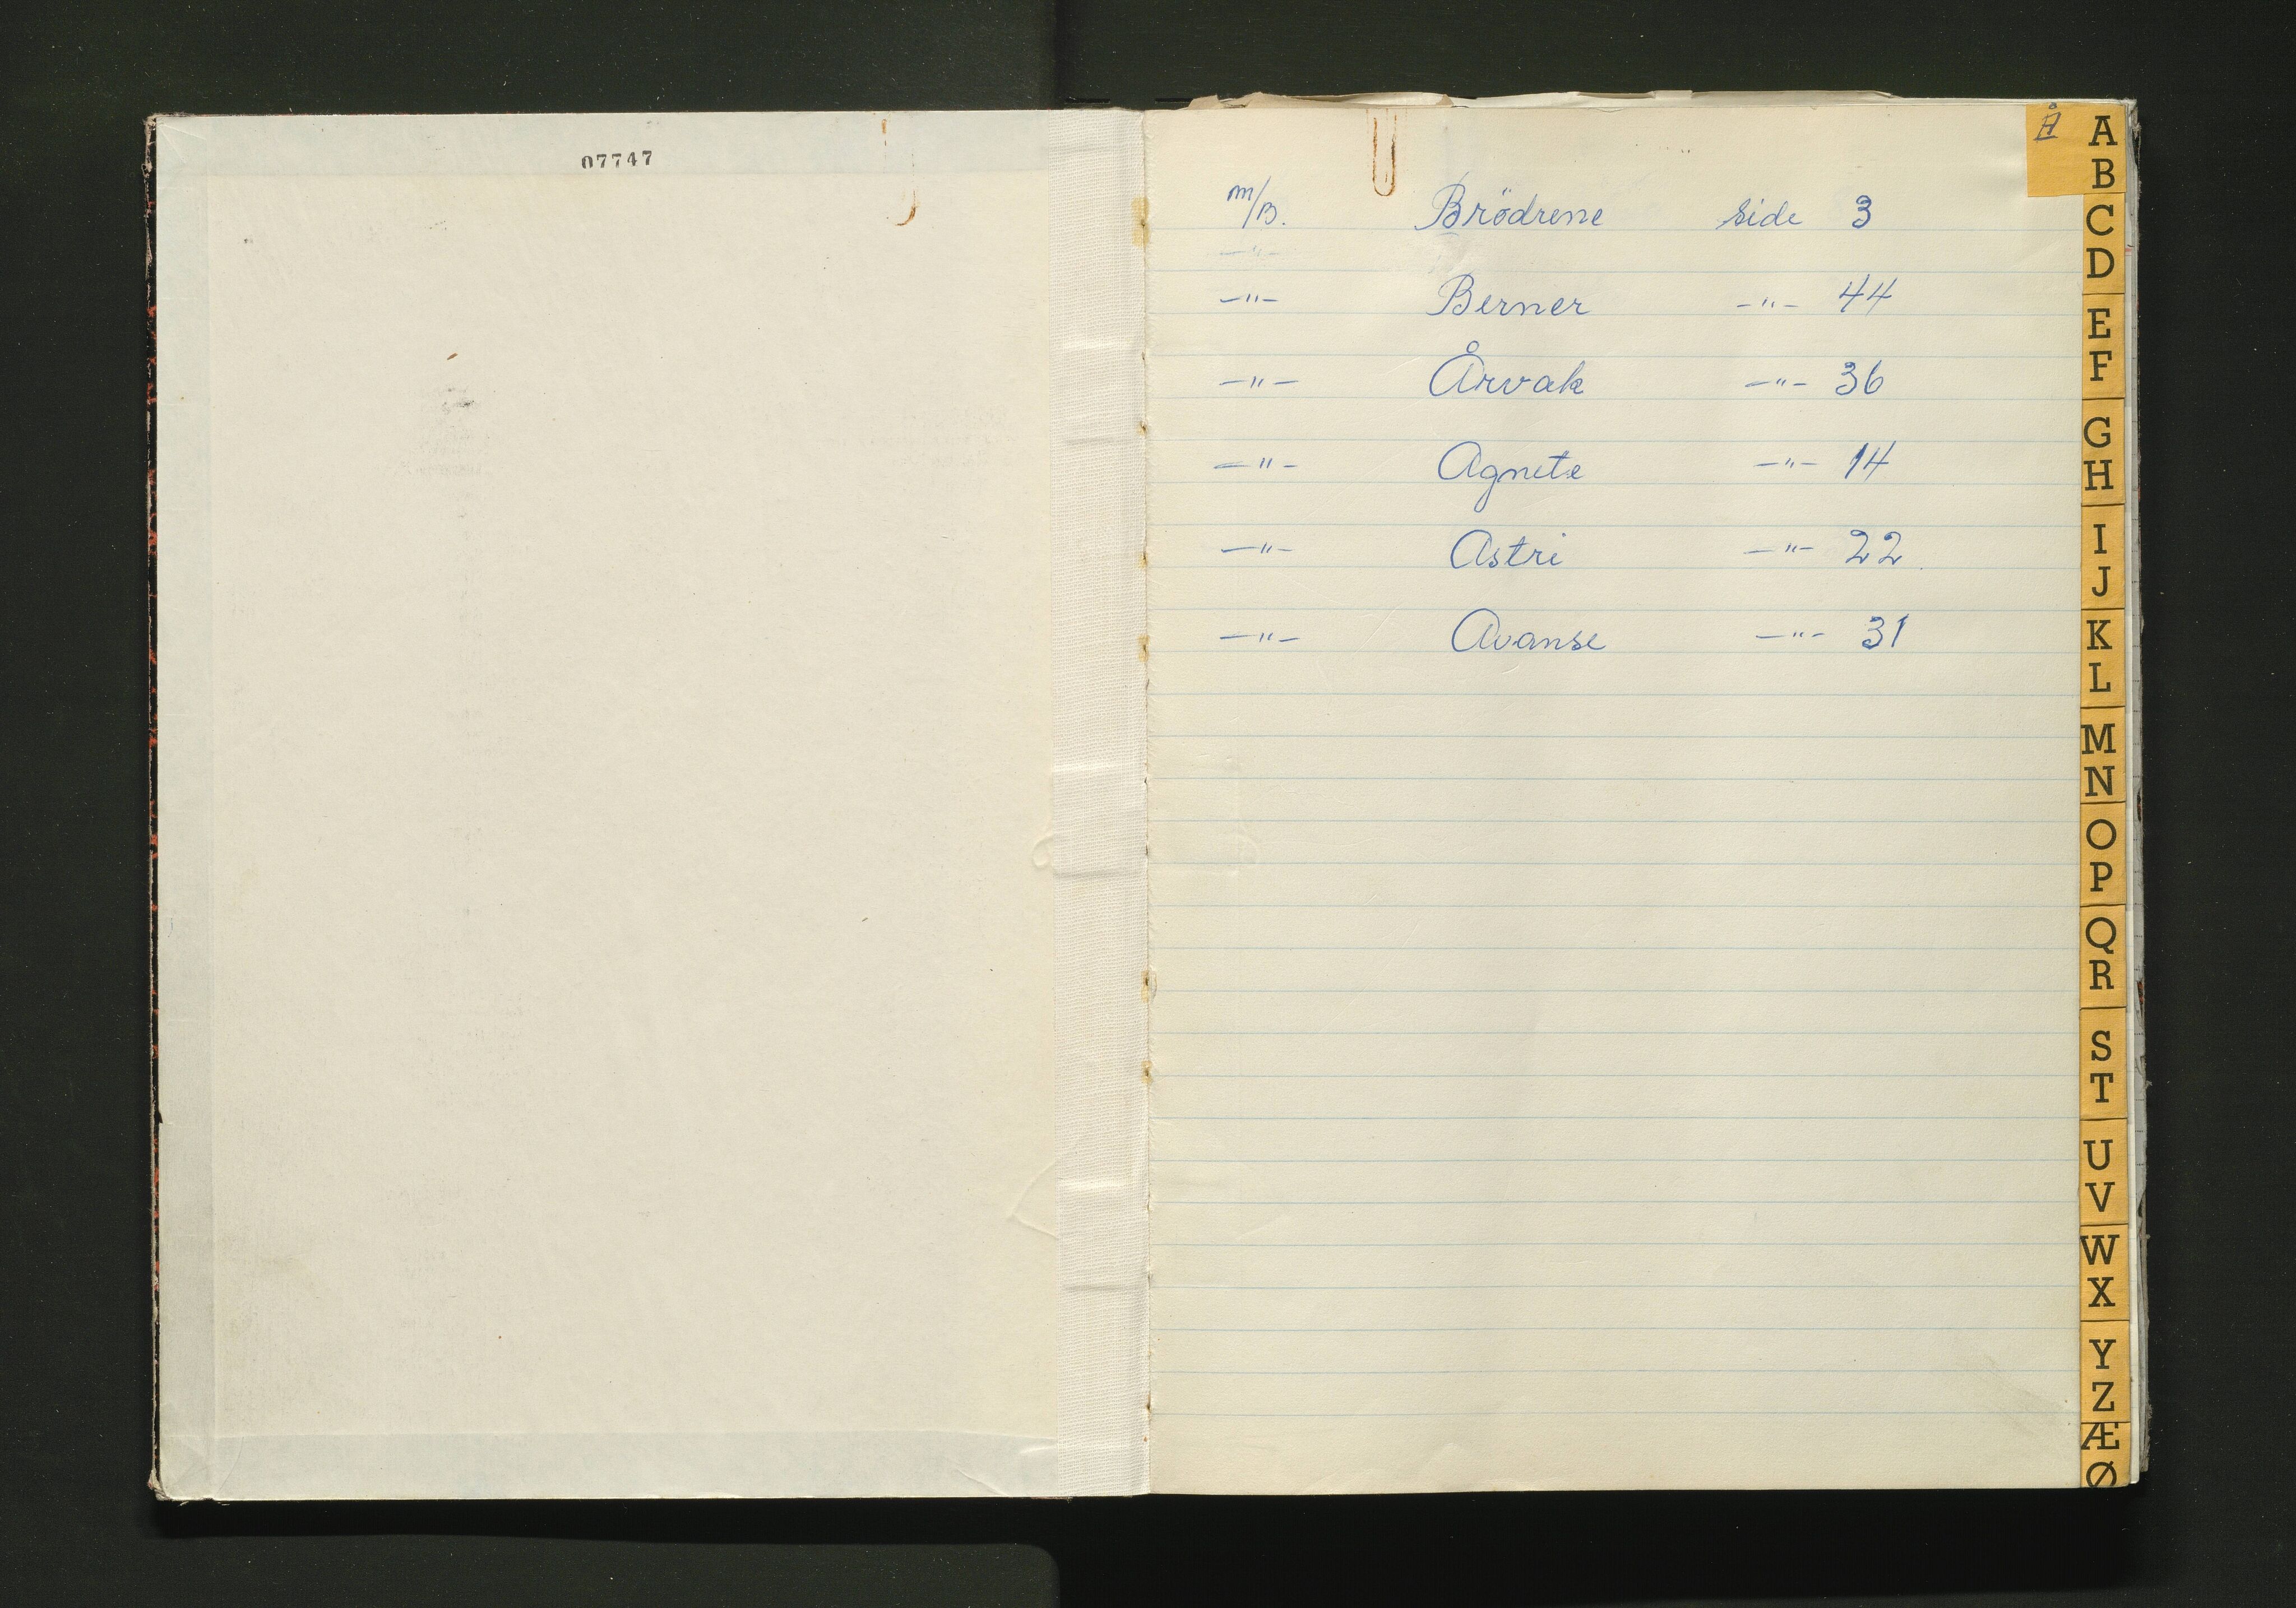 07747
m/B. Brödrene side 3
—"—
—"— Berner —"— 44
—"— Årvak —"— 36
—"— Agnete —"— 14
—"— Astri —"— 22
—"— Avanse —"— 31
Å
A
B
C
D
E
F
G
H
I
J
K
L
M
N
O
P
Q
R
S
T
U
V
W
X
Y
Z
Æ
Ø